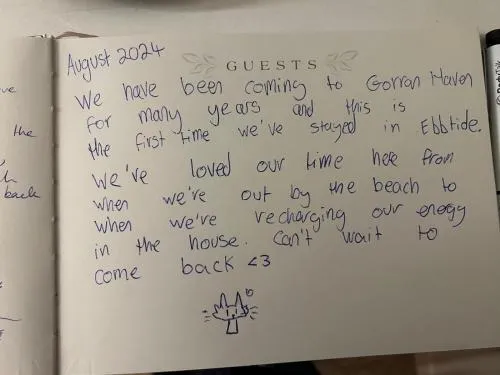 August 2024
GUESTS
We have been coming to Gorran Haven
for many years and this is
the first time we've stayed in Ebbtide.
We've loved our time here from
when we're out by the beach to
when we're recharging our energy
in the house. Can't wait to
come back <3
the
back